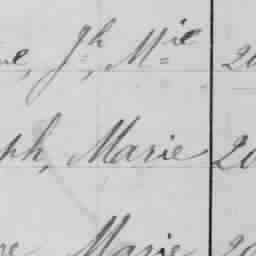 Jh, Mie 20
ph, Marie 20
Marie 20